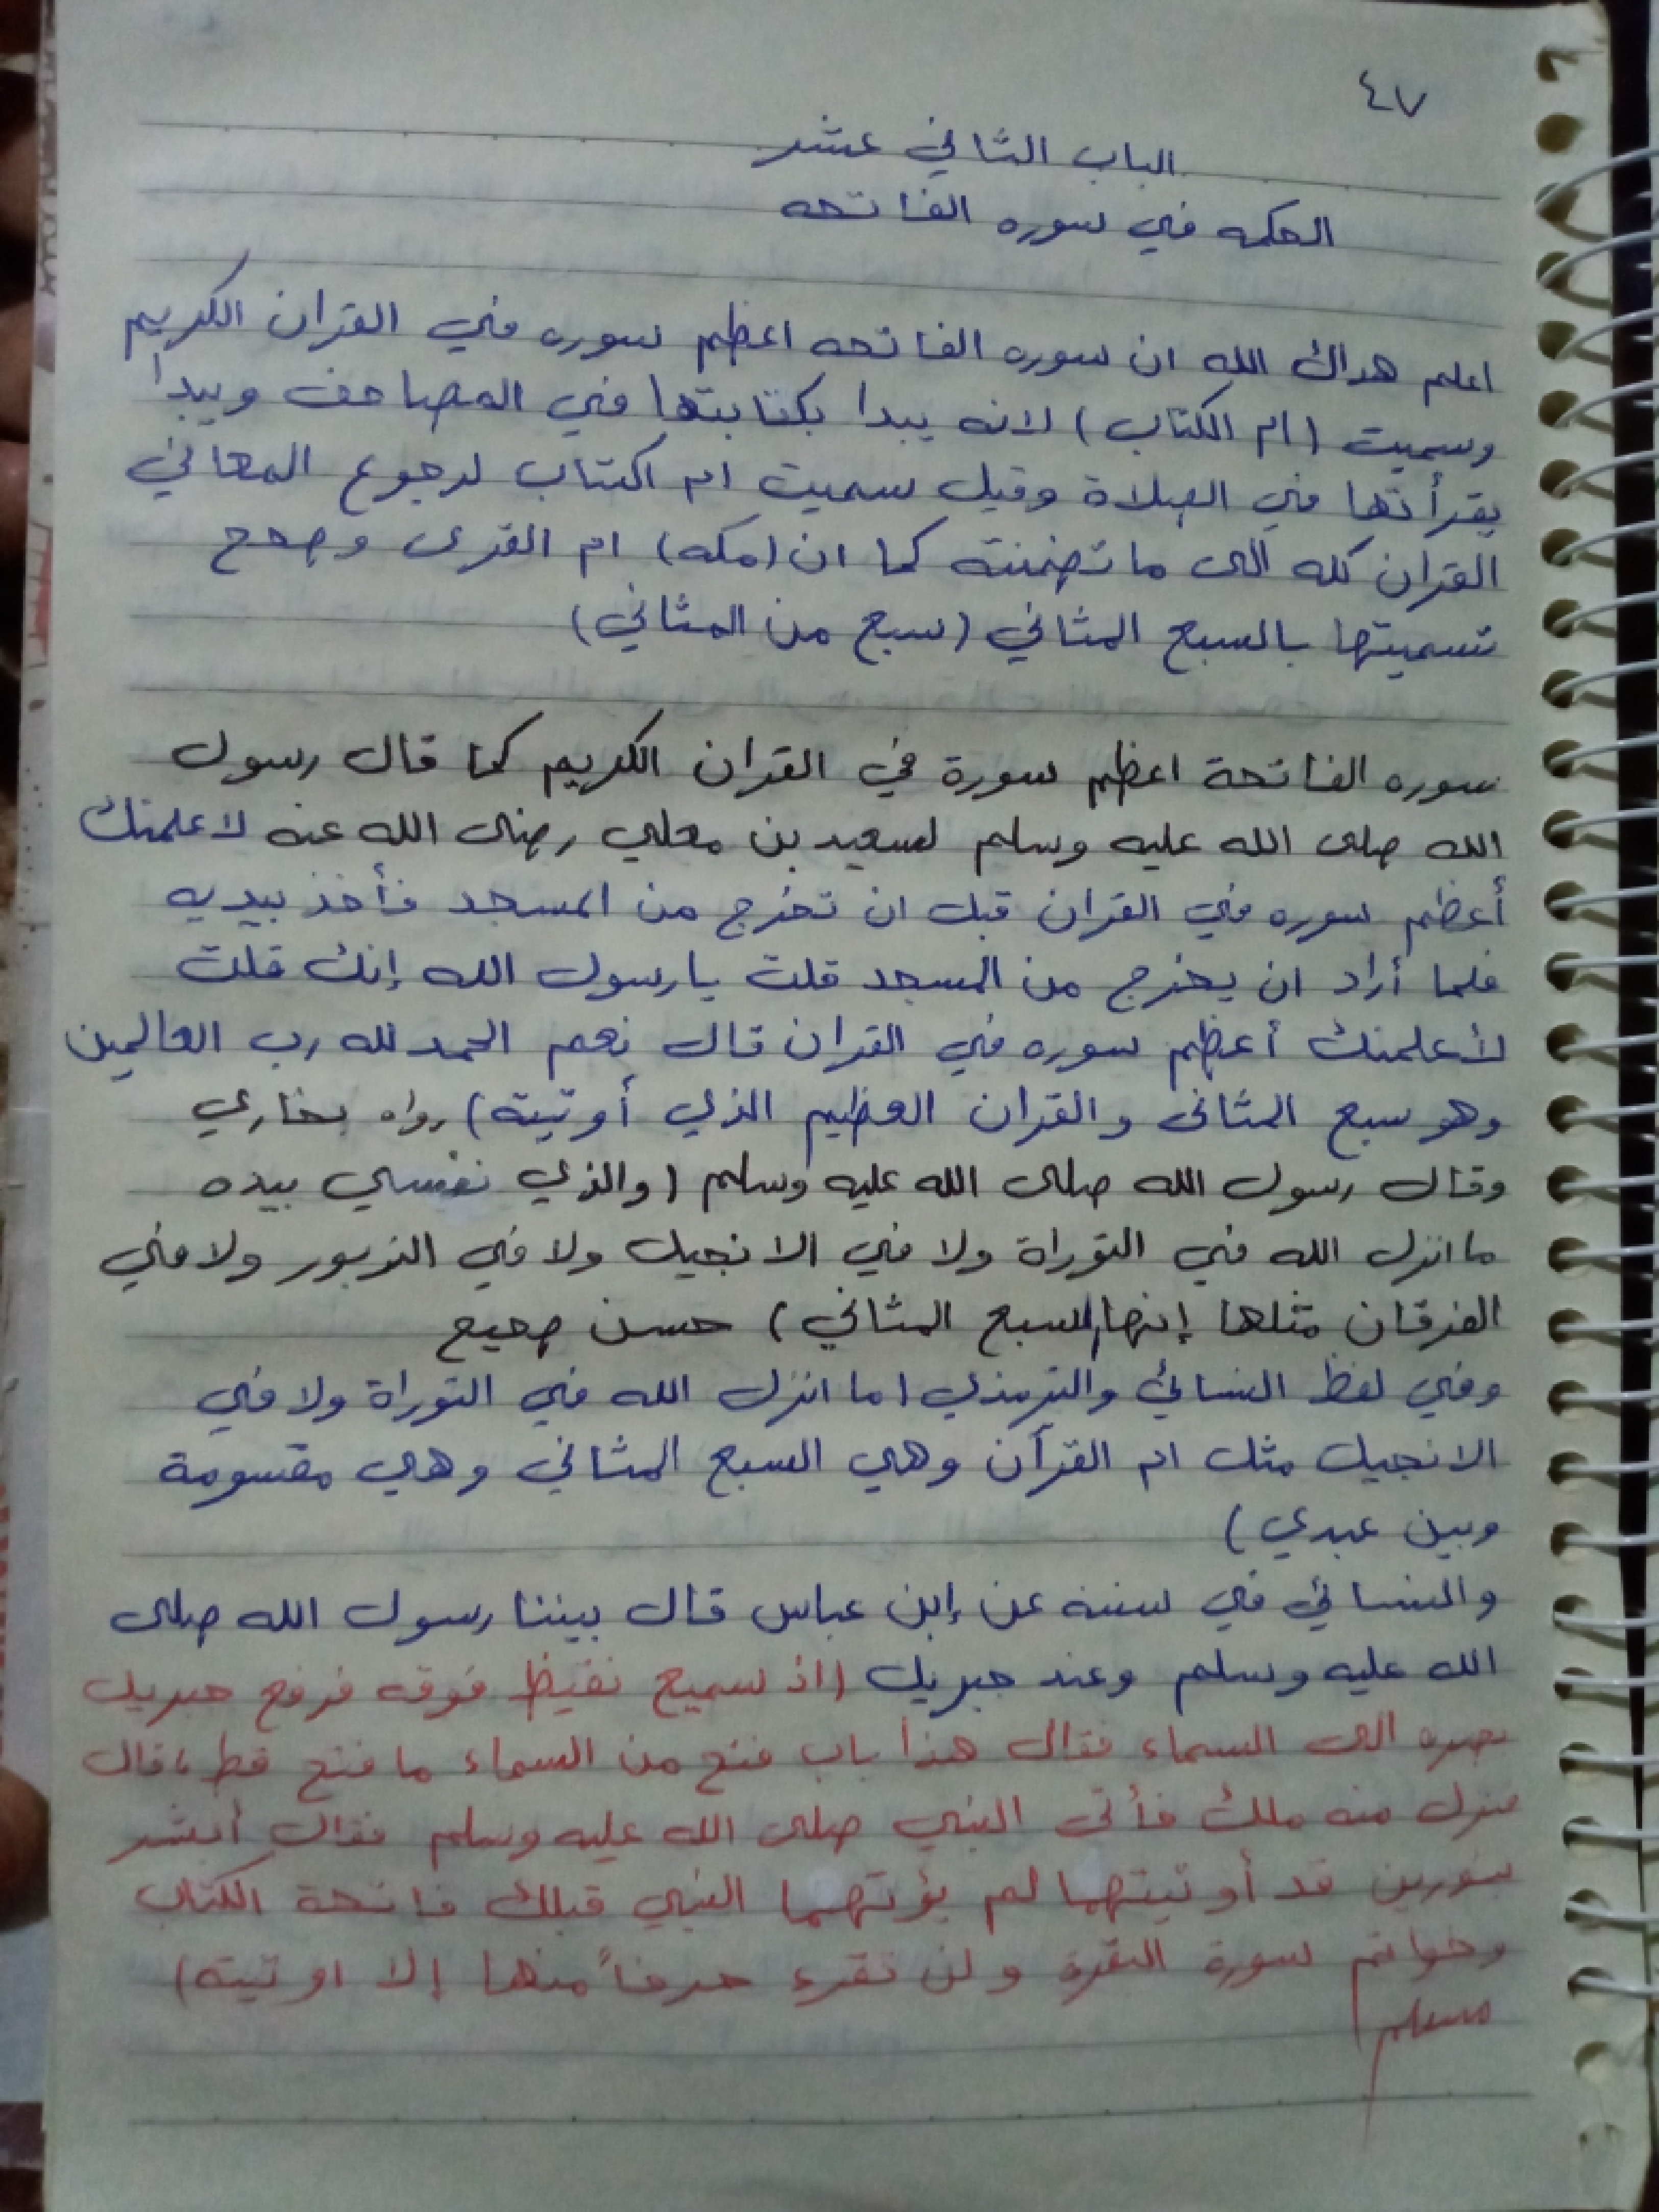 ٤٧
الباب الثاني عشر
الحكمه في سوره الفاتحه
اعلم هداك الله ان سوره الفاتحه اعظم سوره في القران الكريم
وسميت (ام الكتاب) لانه يبدا بكتابتها في المصاحف ويبدا
بقرأتها في الصلاة وقيل سميت ام اكتتاب لرجوع المعاني
القران كله الى ما تضمنته كما ان (مكه) ام القرى وصحح
تسميتها بالسبع المثاني (سبع من المثاني)
سوره الفاتحة اعظم سورة في القران الكريم كما قال رسول
الله صلى الله عليه وسلم لسعيد بن معلي رضى الله عنه لاعلمنك
أعظم سوره في القران قبل ان تخرج من المسجد فأخذ بيديه
فلما أراد ان يخرج من المسجد قلت يا رسول الله إنك قلت
لأعلمنك أعظم سوره في القران قال نعم الحمد لله رب العالمين
وهو سبع المثانى والقران العظيم الذي أوتيتة) رواه بخاري
وقال رسول الله صلى الله عليه وسلم (والذي نفسي بيده
ما انزل الله في التوراة ولا في الانجيل ولا في الزبور ولا في
الفرقان مثلها إنها السبع المثاني) حسن صحيح
وفي لفظ النسائي والترمذي (ما انزل الله في التوراة ولا في
الانجيل مثل ام القرآن وهي السبع المثاني وهي مقسومة
وبين عبدي)
والنسائي في سننه عن إبن عباس قال بيننا رسول الله صلى
الله عليه وسلم وعند جبريل (اذ سميع نقيظ فوقه فرفع جبريل
بصره الى السماء فقال هذا باب فتح من السماء ما فتح قط، قال
فنزل منه ملك فأتى النبي صلى الله عليه وسلم فقال أبشر
بنورين قد أوتيتهما لم يؤتهما النبي قبلك فاتحة الكتاب
وخواتم سورة البقرة ولن تقرء حرفاً منها إلا اوتيته)
مسلم